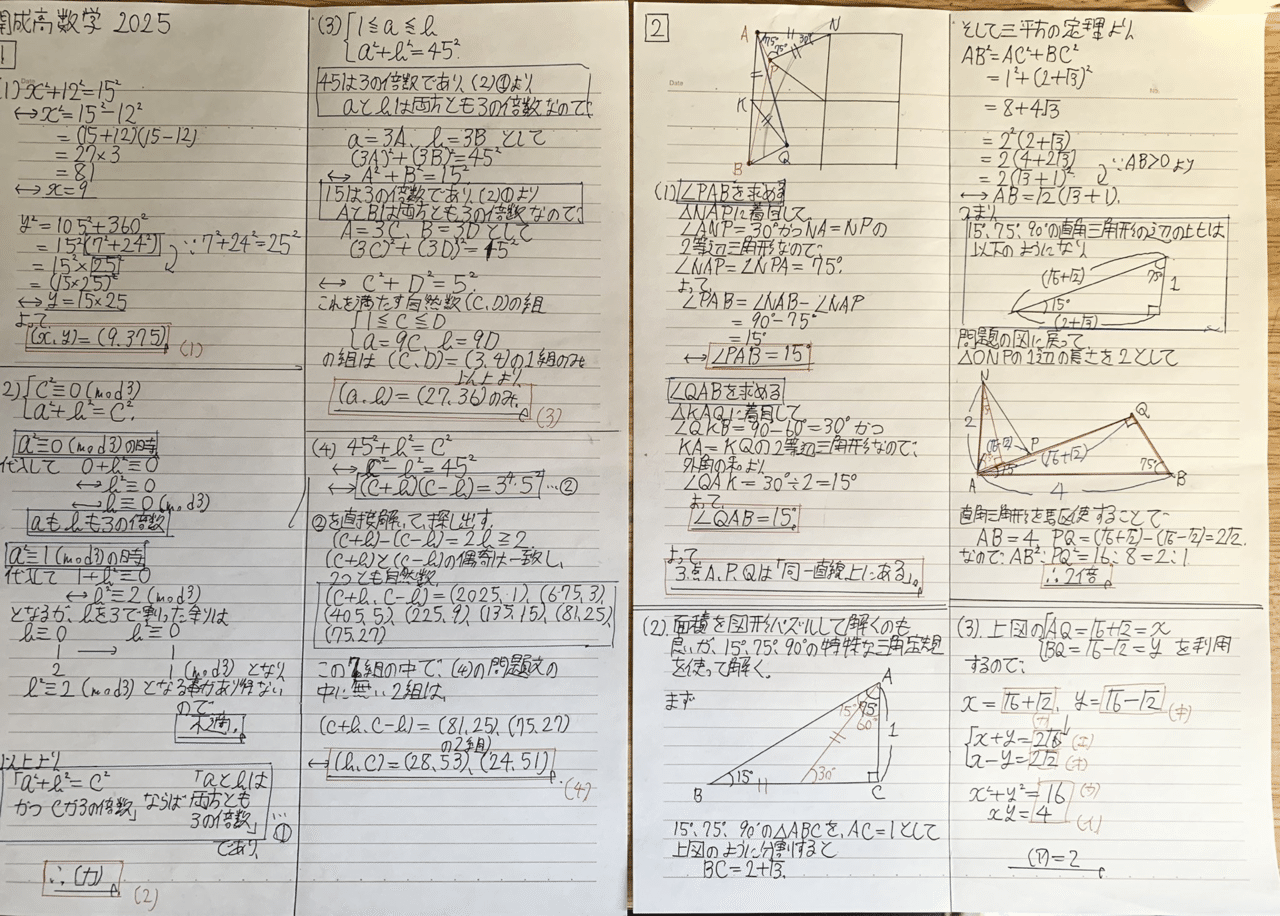 開成高数学 2025
1
(1) x²+12²=15²
↔ x²=15²-12²
=(15+12)(15-12)
=27×3
=81
↔ x=9
y²=105²+360²
=15²(7²+24²) ∵7²+24²=25²
=15²×25²
=(15×25)²
↔ y=15×25
よって
(x,y)=(9,375) (1)
2) { C²≡0 (mod3)
a²+b²=C².
a²≡0 (mod3)の時
代入して 0+b²≡0
↔ b²≡0
↔ b≡0 (mod3)
aもbも3の倍数
a²≡1 (mod3)の時
代入して 1+b²≡0
↔ b²≡2 (mod3)
となるが、bを3で割った余りは
b≡0 b²≡0
1 → 1
2 1 (mod3) となり
b²≡2 (mod3) となる事があり得ない
ので
不適.
以上より
「a²+b²=C² 「aとbは
かつ Cが3の倍数」ならば 両方とも
3の倍数」 …①
であり、
∴ (カ) (2)
(3) { 1≦a≦b
a²+b²=45²
45は3の倍数であり、(2)①より
aとbは両方とも3の倍数なので、
a=3A、b=3B として
(3A)²+(3B)²=45²
↔ A²+B²=15²
15は3の倍数であり、(2)①より
AとBは両方とも3の倍数なので、
A=3C、B=3Dとして
(3C)²+(3D)²=15²
↔ C²+D²=5²
これを満たす自然数(C,D)の組
{ 1≦C≦D
a=9C, b=9D
の組は (C,D)=(3,4)の1組のみ
以上より
(a,b)=(27,36)のみ (3)
(4) 45²+b²=C²
↔ C²-b²=45²
↔ (C+b)(C-b)=3⁴·5² …②
②を直接解いて探し出す。
(C+b)-(C-b)=2b≧2
(C+b)と(C-b)の偶奇は一致し、
2つとも自然数.
(C+b, C-b)=(2025,1),(675,3),
(405,5),(225,9),(135,15),(81,25),
(75,27)
この7組の中で、(4)の問題文の
中に無い2組は、
(C+b, C-b)=(81,25),(75,27)
の2組
↔ (b,C)=(28,53),(24,51) (4)
2
A N
75° 75° 30°
P
K
B Q
(1) ∠PABを求める
△NAPに着目して
∠ANP=30°かつNA=NPの
2等辺三角形なので、
∠NAP=∠NPA=75°.
よって
∠PAB=∠NAB-∠NAP
=90°-75°
=15°
↔ ∠PAB=15°
∠QABを求める
△KAQに着目して
∠QKB=90-60=30°かつ
KA=KQの2等辺三角形なので、
外角の和より
∠QAK=30°÷2=15°
よって
∠QAB=15°
よって
3点A,P,Qは「同一直線上にある」
(2). 面積を図形パズルして解くのも
良いが、15°,75°,90°の特殊な三角定規
を使って解く。
まず
A
15° 75°
60°
1
15° 30°
B C
15°,75°,90°の△ABCを、AC=1として
上図のように分割すると
BC=2+√3.
そして三平方の定理より
AB²=AC²+BC²
=1²+(2+√3)²
=8+4√3
=2²(2+√3)
=2(4+2√3)
=2(√3+1)² ∵AB>0より
↔ AB=√2(√3+1).
つまり
15°,75°,90°の直角三角形の辺の比は
以下のようになり
(√6+√2) 75° 1
15°
(2+√3)
問題の図に戻って
△ONPの1辺の長さを2として
N
2 P Q
(√6-√2) (√6+√2)
15° 75°
A 4 B
直角三角形を駆使することで、
AB=4, PQ=(√6+√2)-(√6-√2)=2√2.
なので、AB²:PQ²=16:8=2:1
∴2倍
(3). 上図の{ AQ=√6+√2=x
BQ=√6-√2=y を利用
するので、
x=√6+√2, y=√6-√2 (キ)
(カ)
{ x+y=2√6 (エ)
x-y=2√2 (オ)
x²+y²=16 (ウ)
xy=4 (イ)
(ア)=2